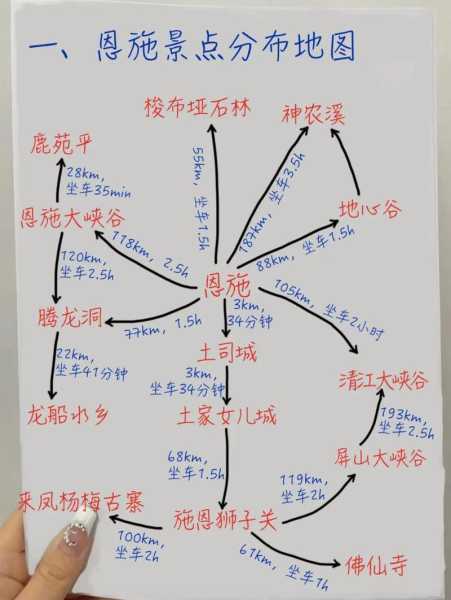 一、恩施景点分布地图
梭布垭石林
神农溪
鹿苑平
28km,
坐车35min
55km, 坐车1.5h
187km, 坐车3.5h
恩施大峡谷
地心谷
118km, 2.5h
88km, 坐车1.5h
120km,
坐车2.5h
恩施
105km, 坐车2小时
3km,
34分钟
腾龙洞
77km, 1.5h
土司城
22km,
坐车41分钟
3km,
坐车34分钟
清江大峡谷
龙船水乡
土家女儿城
193km,
坐车2.5h
68km,
坐车1.5h
屏山大峡谷
119km,
坐车2h
来凤杨梅古寨
施恩狮子关
100km,
坐车2h
61km, 坐车1h
佛仙寺